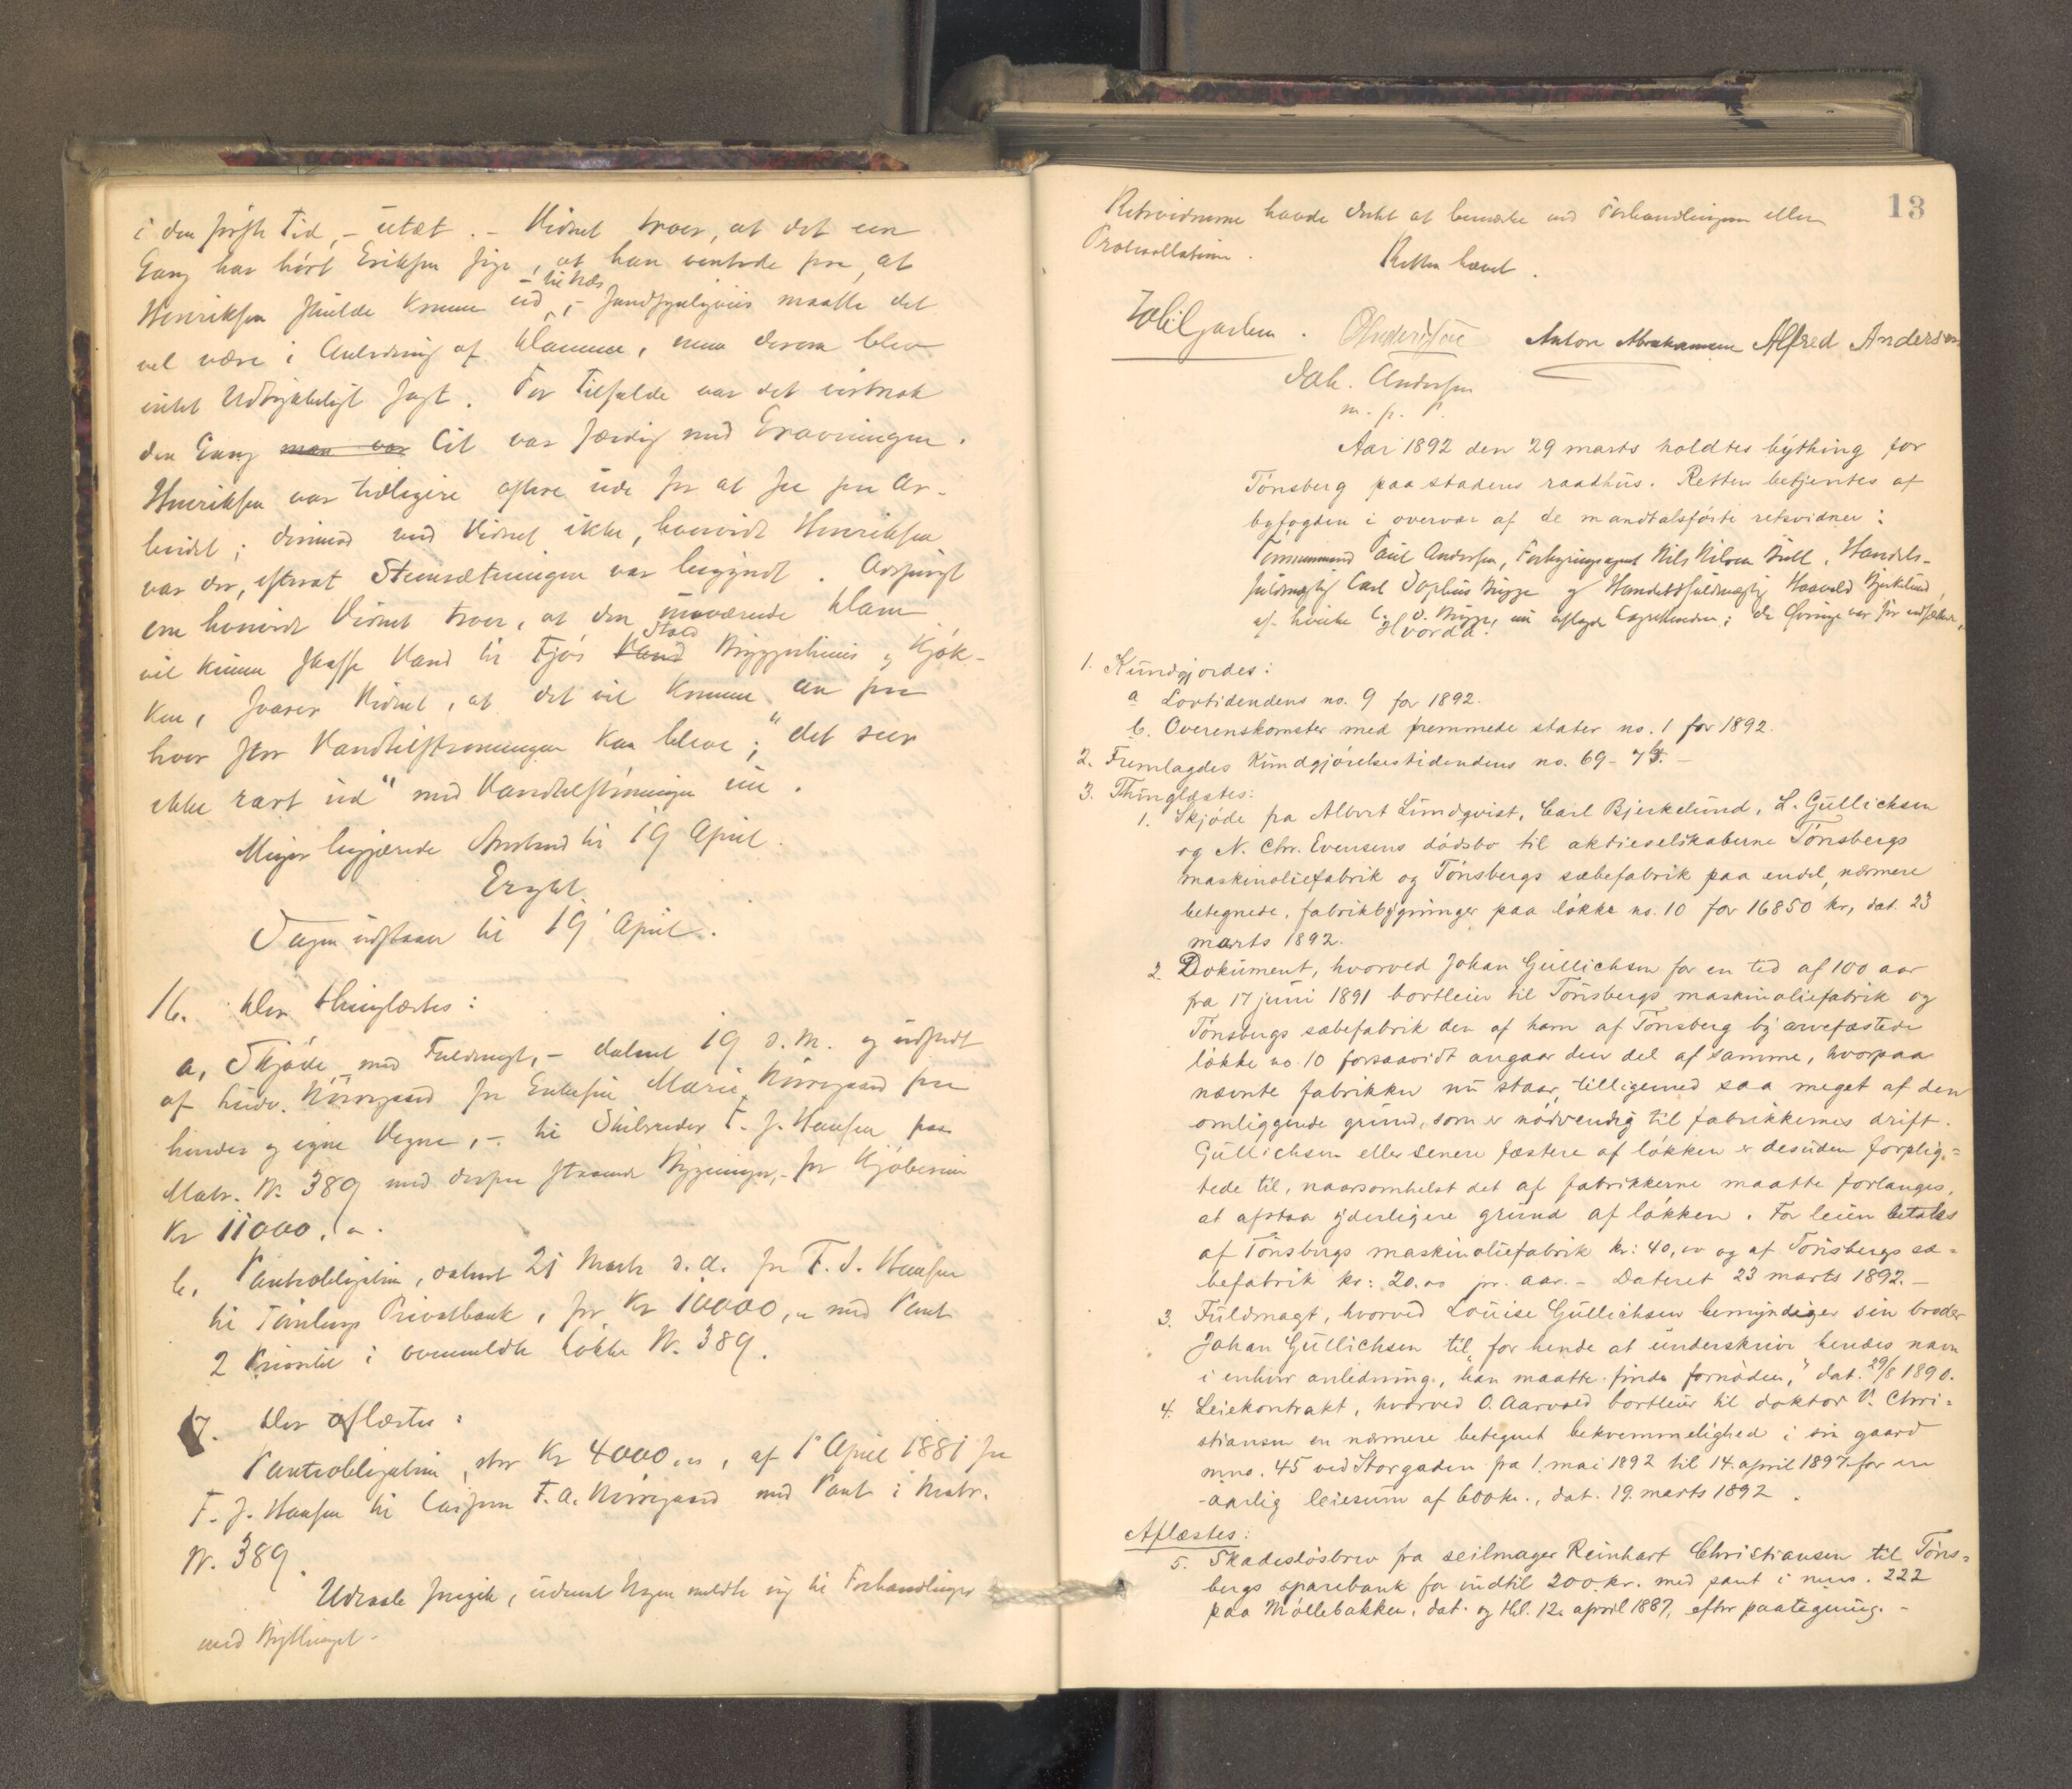 i den første Tid, – utæt. – Vidnet troer, at det een
Gang har hørt Eriksen sige, at han ventede paa, at
Henriksen skulde komme ud, –
vel være i Anledning af Dammen, men derom blev
intet Udtrykkeligt sagt. For Tilfælde var det
den Gang man var Lit var færdig med Gravningen.
Henriksen var tidligere oftere ude for at se paa Ar-
beidet; derimod ved Vidnet ikke, hvorvidt Henriksen
var der, efterat Stensætningen var begyndt. Adspurgt
om hvorvidt Vidnet troer, at den nuværende Dam
vil kunne skaffe Vand til Fjøs Stald Bryggerhuus og Kjøk-
ken, svarer Vidnet, at det vil komme an paa
hvor stor Vandtilstrømningen kan blive; "det seer
ikke rart ud" med Vandtilstrømningen nu.
Meyer begjærede Anstand til 19 April.
Eragtet
Sagen udstaaer til 19 April.
16. Blev thinglæstes:
a, Skjøde med Fuldmagt, – dateret 19 d.M. og udstedt
af Ludv. Nørregaard for Enkefru Marie Nørregaard paa
hendes og egne Vegne, – til Skibsreder F. J. Hansen paa
Matr. N. 389 med derpaa staaende Bygninger, – for Kjøbesum
Kr 11000. „.
b, Pantobligation, dateret 21 Marts d.A. fra F. J. Hansen
til Tønsbergs Privatbank, for Kr 10000, „ med Pant
2 Prioritet i ovenmeldte Løkke N. 389.
17. Blev aflæstes:
Pantobligation, stor Kr 4000 „, af 1 April 1881 fra
F. J. Hansen til F. A. Nørregaard med Pant i Matr.
N. 389.
Udraab foregik, udent Nogen meldte sig til Forhandlinger
ved Bythinget.
13
Retsvidnerne havde Intet at bemærke ved Forhandlingen eller
Protocollationen. Retten hævet.
Anton Abrahamsen Alfred Andersen
Jak. Andersen
m. p. P.
Aar 1892 den 29 marts holdtes bything for
Tønsberg paa stadens raadhus. Retten betjentes af
byfogden i overvær af de mandtalsførte retsvidner:
Tømmermand Paul Andersen, Forhyringsagent Nils Nilsen Bull, Handels-
fuldmægtig Carl Sophus Brygge og Handelsfuldmægtig Haavald Bjerkelund,
af hvilke C. S. Brygge nu aflagde Lagrettened; de Øvrige var før edfæstede,
Hvorda:
1. Kundgjordes:
a Lovtidendens no. 9 for 1892.
b. Overenskomster med fremmede stater no. 1 for 1892.
2. Fremlagdes Kundgjørelsestidendens no. 69 – 76. –
3. Thinglæstes:
1. Skjøde fra Albert Lundqvist, Carl Bjerkelund, L. Gullichsen
og N. Chr. Evensens dødsbo til aktieselskaberne Tønsbergs
maskinoliefabrik og Tønsbergs sæbefabrik paa endel, nærmere
betegnede, fabrikbygninger paa løkke no. 10 for 16850 kr, dat. 23
marts 1892.
2. Dokument, hvorved Johan Gullichsen for en tid af 100 aar
fra 17 juni 1891 bortleier til Tønsbergs maskinoliefabrik og
Tønsbergs sæbefabrik den af ham af Tønsberg by arvefæstede
løkke no. 10 forsaavidt angaar den del af samme, hvorpaa
nævnte fabrikker nu staar, tilligemed saa meget af den
omliggende grund, som er nødvendig til fabrikkernes drift.
Gullichsen eller senere fæstere af løkken er desuden forplig-
tede til, naarsomhelst det af fabrikkerne maatte forlanges,
at afstaa yderligere grund af løkken. For leien betales
af Tønsbergs maskinoliefabrik kr: 40,00 og af Tønsbergs sæ-
befabrik kr: 20.00 pr. aar. – Dateret 23 marts 1892. –
3. Fuldmagt, hvorved Louise Gullichsen bemyndiger sin broder
Johan Gullichsen til "for hende at underskrive hendes navn
i enhver anledning, han maatte finde fornøden," dat. 29/8 1890.
4. Leiekontrakt, hvorved O. Aarvold bortleier til doktor V. Chri-
stiansen en nærmere betegnet bekvemmelighed i sin gaard
mno. 45 ved Storgaden fra 1. mai 1892 til 14. april 1897 for en
aarlig leiesum af 600 kr., dat. 19. marts 1892.
Aflæstes:
5. Skadesløsbrev fra seilmager Reinhart Christiansen til Tøns-
bergs sparebank for indtil 200 kr. med pant i mno. 222
paa Møllebakken, dat. og thl. 12. april 1887, efter paategning. –